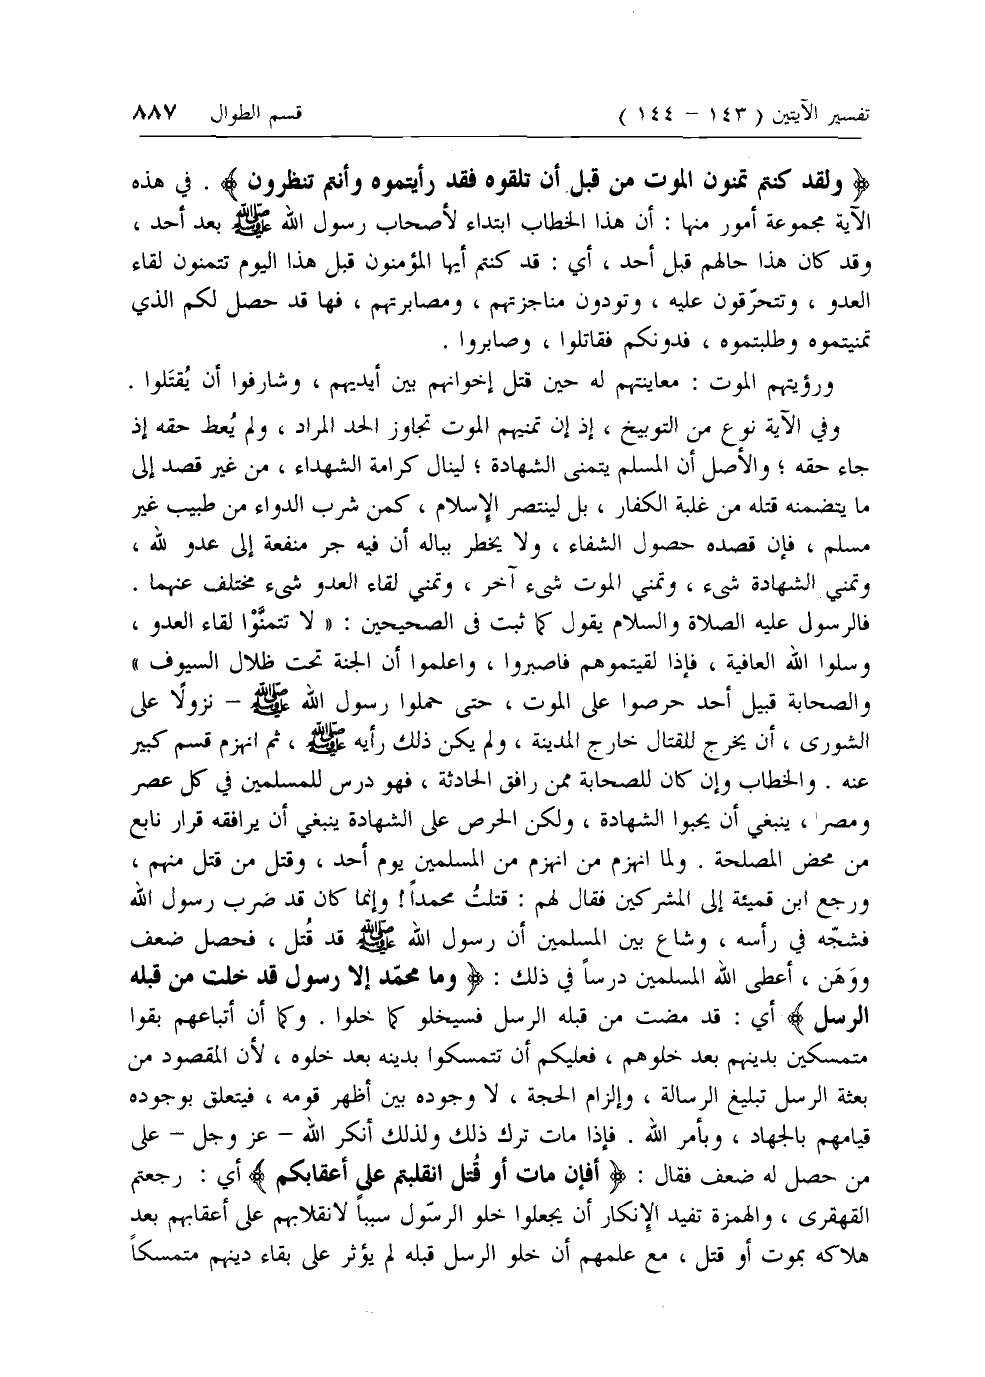 تفسير الآيتين ( ١٤٣ - ١٤٤ ) قسم الطوال ٨٨٧
﴿ ولقد كنتم تمنون الموت من قبل أن تلقوه فقد رأيتموه وأنتم تنظرون ﴾ . في هذه
الآية مجموعة أمور منها : أن هذا الخطاب ابتداء لأصحاب رسول الله ﷺ بعد أحد ،
وقد كان هذا حالهم قبل أحد ، أي : قد كنتم أيها المؤمنون قبل هذا اليوم تتمنون لقاء
العدو ، وتتحرّقون عليه ، وتودون مناجزتهم ، ومصابرتهم ، فها قد حصل لكم الذي
تمنيتموه وطلبتموه ، فدونكم فقاتلوا ، وصابروا .
ورؤيتهم الموت : معاينتهم له حين قتل إخوانهم بين أيديهم ، وشارفوا أن يُقتَلوا .
وفي الآية نوع من التوبيخ ، إذ إن تمنيهم الموت تجاوز الحد المراد ، ولم يُعط حقه إذ
جاء حقه ؛ والأصل أن المسلم يتمنى الشهادة ؛ لينال كرامة الشهداء ، من غير قصد إلى
ما يتضمنه قتله من غلبة الكفار ، بل لينتصر الإسلام ، كمن شرب الدواء من طبيب غير
مسلم ، فإن قصده حصول الشفاء ، ولا يخطر بباله أن فيه جر منفعة إلى عدو لله ،
وتمني الشهادة شىء ، وتمني الموت شىء آخر ، وتمني لقاء العدو شىء مختلف عنهما .
فالرسول عليه الصلاة والسلام يقول كما ثبت فى الصحيحين : « لا تتمنَّوْا لقاء العدو ،
وسلوا الله العافية ، فإذا لقيتموهم فاصبروا ، واعلموا أن الجنة تحت ظلال السيوف »
والصحابة قبيل أحد حرصوا على الموت ، حتى حملوا رسول الله ﷺ – نزولًا على
الشورى ، أن يخرج للقتال خارج المدينة ، ولم يكن ذلك رأيه ﷺ ، ثم انهزم قسم كبير
عنه . والخطاب وإن كان للصحابة ممن رافق الحادثة ، فهو درس للمسلمين في كل عصر
ومصر ، ينبغي أن يحبوا الشهادة ، ولكن الحرص على الشهادة ينبغي أن يرافقه قرار نابع
من محض المصلحة . ولما انهزم من انهزم من المسلمين يوم أحد ، وقتل من قتل منهم ،
ورجع ابن قميئة إلى المشركين فقال لهم : قتلتُ محمداً ! وإنما كان قد ضرب رسول الله
فشجّه في رأسه ، وشاع بين المسلمين أن رسول الله ﷺ قد قُتل ، فحصل ضعف
ووَهَن ، أعطى الله المسلمين درساً في ذلك : ﴿ وما محمّد إلا رسول قد خلت من قبله
الرسل ﴾ أي : قد مضت من قبله الرسل فسيخلو كما خلوا . وكما أن أتباعهم بقوا
متمسكين بدينهم بعد خلوهم ، فعليكم أن تتمسكوا بدينه بعد خلوه ، لأن المقصود من
بعثة الرسل تبليغ الرسالة ، وإلزام الحجة ، لا وجوده بين أظهر قومه ، فيتعلق بوجوده
قيامهم بالجهاد ، وبأمر الله . فإذا مات ترك ذلك ولذلك أنكر الله – عز وجل – على
من حصل له ضعف فقال : ﴿ أفإن مات أو قُتل انقلبتم على أعقابكم ﴾ أي : رجعتم
القهقرى ، والهمزة تفيد الإنكار أن يجعلوا خلو الرسّول سبباً لانقلابهم على أعقابهم بعد
هلاكه بموت أو قتل ، مع علمهم أن خلو الرسل قبله لم يؤثر على بقاء دينهم متمسكاً